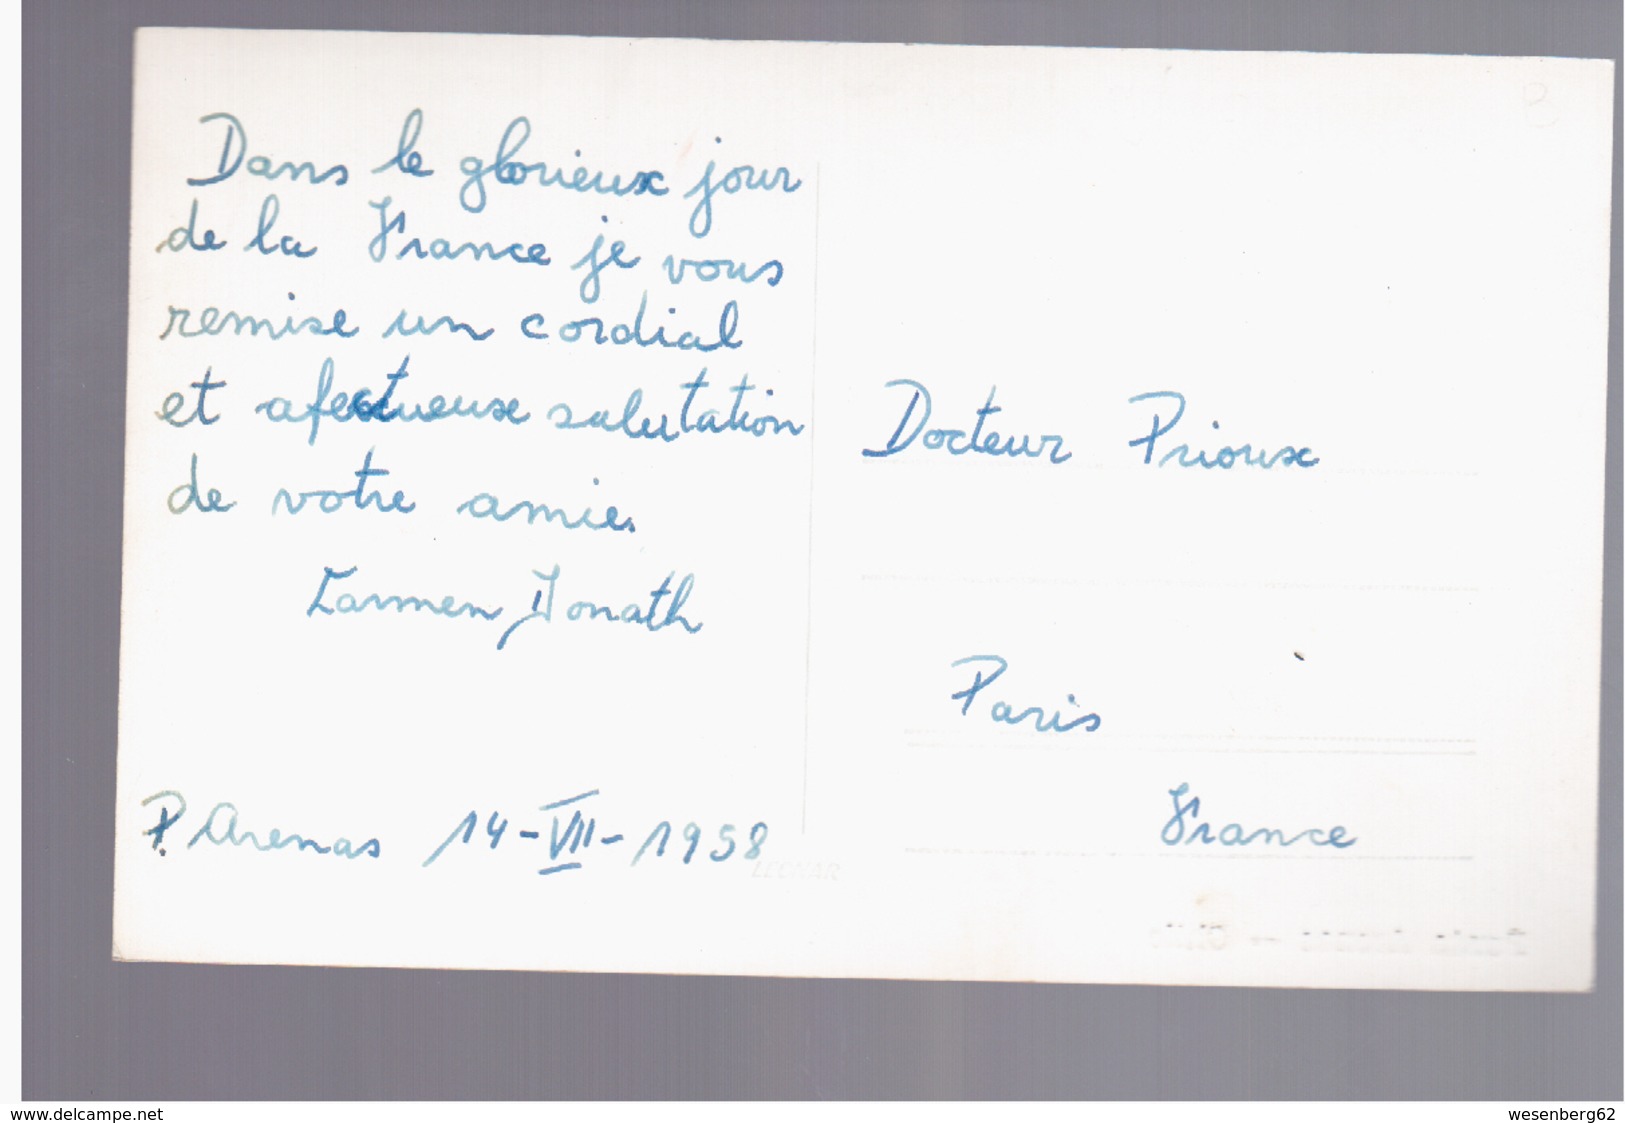 Dans le glorieux jour
de la France je vous
remise un cordial
et afectueuse salutation
de votre amie.
Carmen Donath
P. Arenas 14-VII-1958
LEONAR
Docteur Prioux
Paris
France
www.delcampe.net
wesenberg62